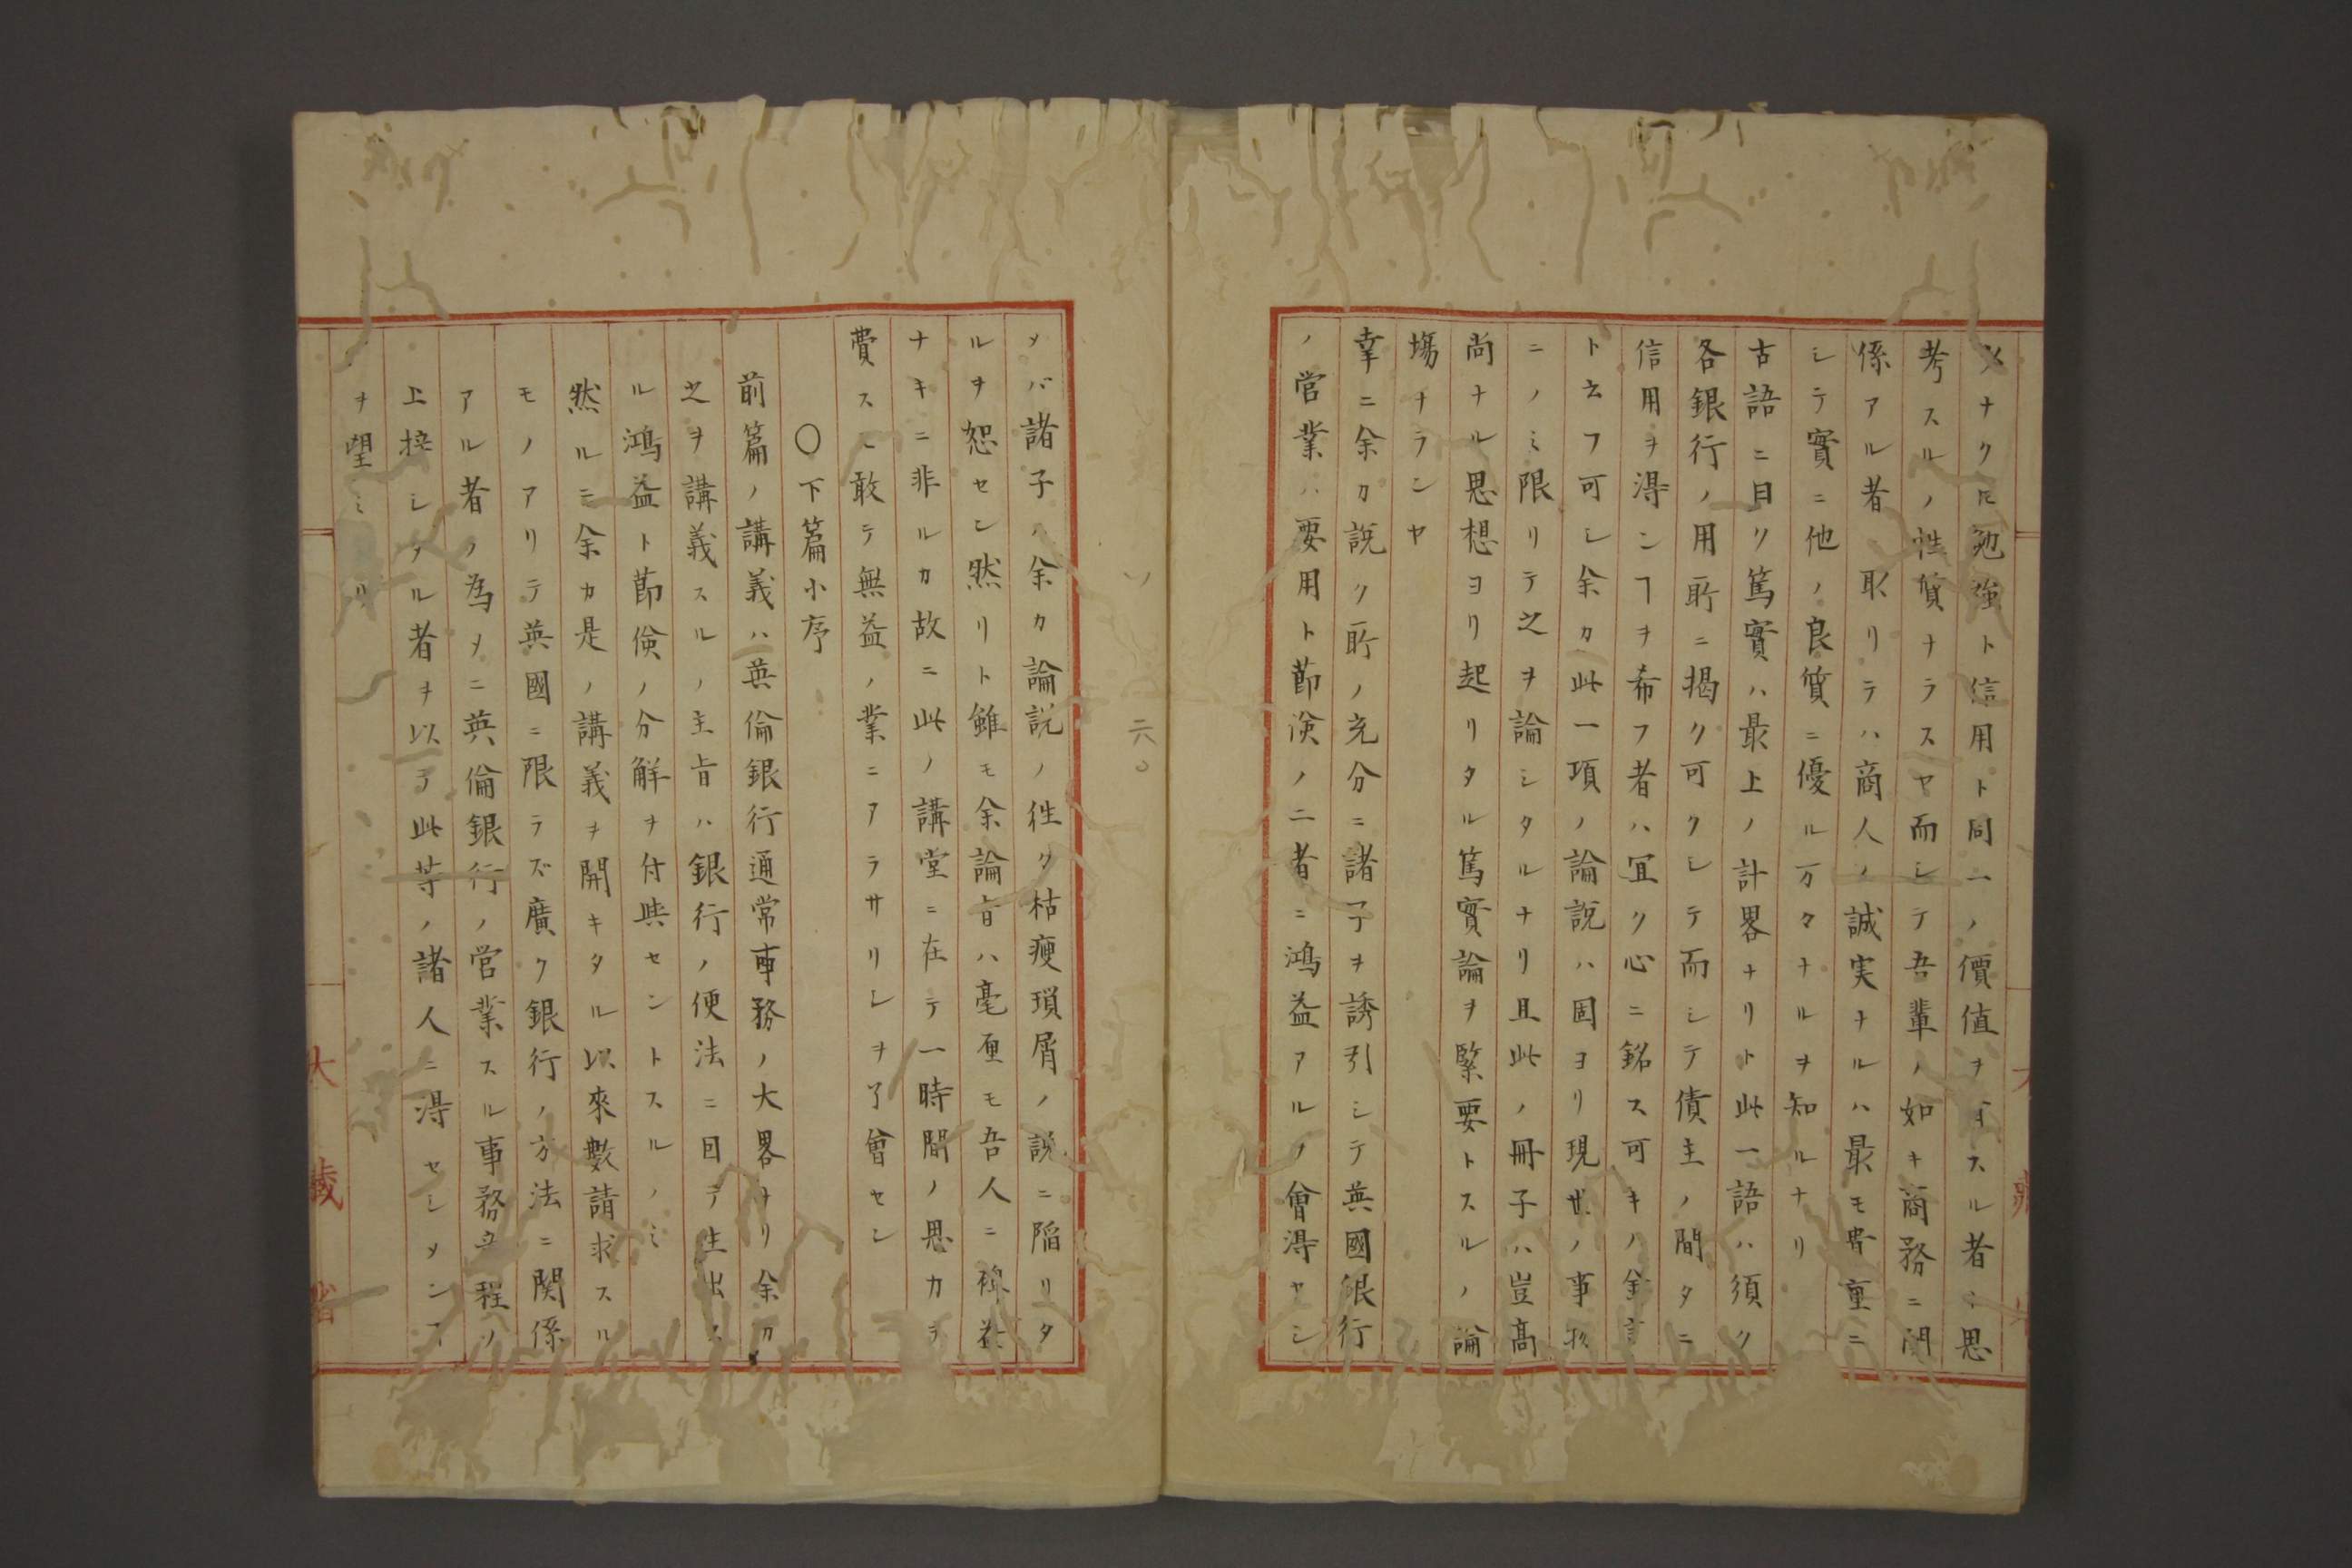 メナクㇳモ勉強ト信用ト同一ノ價値ヲ有スル者ト思
考スルノ性質ナラスヤ而シテ吾輩ノ如キ商務ニ関
係アル者ニ取リテハ商人ノ誠実ナルハ最モ貴重ニ
シテ實ニ他ノ良質ニ優ル万々ナルヲ知ルナリ
古語ニ曰ク篤實ハ最上ノ計畧ナリト此一語ハ須ク
各銀行ノ用所ニ掲ク可クシテ而シテ債主ノ間タニ
信用ヲ得ンヿヲ希フ者ハ冝ク心ニ銘ス可キノ金言
ト云フ可シ余カ此一項ノ論説ハ固ヨリ現世ノ事務
ニノミ限リテ之ヲ論シタルナリ且此ノ冊子ハ豈髙
尚ナル思想ヨリ起リタル篤實論ヲ緊要トスルノ論
塲ナランヤ
幸ニ余カ説ク所ノ充分ニ諸子ヲ誘引シテ英國銀行
ノ営業ハ要用ト節儉ノ二者ニ鴻益アルノ會得ヤシ
メバ諸子ハ余カ論説ノ徃々枯痩瑣屑ノ説ニ陥リタ
ルヲ恕セン然リト雖モ余論旨ハ毫厘モ吾人ニ裨益
ナキニ非ルカ故ニ此ノ講堂ニ在テ一時間ノ思カヲ
費スモ敢テ無益ノ業ニアラサリシヲ了會セン
〇下篇小序
前篇ノ講義ハ英倫銀行通常事務ノ大畧ナリ余カ
之ヲ講義スルノ主旨ハ銀行ノ便法ニ因テ生出ス
ル鴻益ト節儉ノ分解ヲ付與セントスルノミ
然ルニ余カ是ノ講義ヲ開キタル以來數請求スル
モノアリテ英國ニ限ラズ廣ク銀行ノ方法ニ関係
アル者ノ為メニ英倫銀行ノ営業スル事務立程ノ
上梓シタル者ヲ以テ此等ノ諸人ニ得セシメンヿ
ヲ望ミリ
大藏省